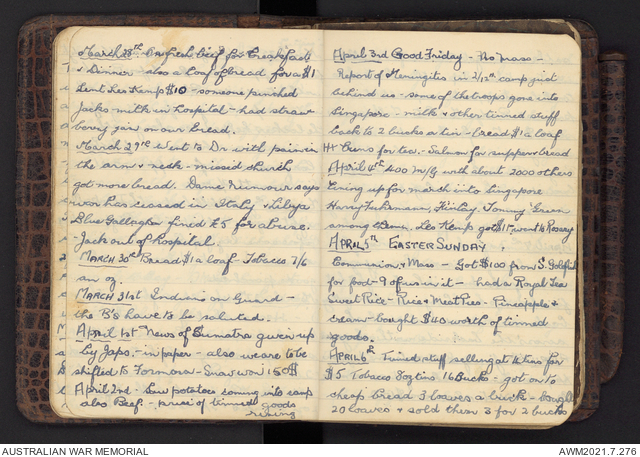 March 28th - On fresh beef for breakfast
& Dinner - also a loaf of bread for a $1
Lent Leo Kemp $10 - someone pinched
Jacks milk in hospital - had straw-
berry jam on our bread.
March 29th Went to Dr with pain in
the arm & neck - missed church
got more bread. Dame Rumour says
war has ceased in Italy & Libya
Blue Gallagher fined £5 for abuse.
- Jack out of hospital.
MARCH 30th Bread $1 a loaf - Tobacco 7/6
an oz.
MARCH 31st Indians on Guard -
the B's have to be saluted.
April 1st News of Sumatra given up
by Japs, - in paper - also we are to be
shifted to Formosa - Snow won 150$
April 2nd - Saw potatoes coming into camp
also Beef. - price of tinned goods
rising
April 3rd Good Friday - No mass -
Report of Meningitis in 2/12th camp just
behind us - some of the troops gone into
Singapore - milk & other tinned stuff
back to 2 bucks a tin - bread $1 a loaf
Buns for tea. - Salmon for supper & bread
April 4th 400 M/G with about 2000 others
lining up for march into Singapore
Harry Tuckerman, Finlay, Tommy Green
among them. Leo Kemp got $1 went to Rosary
APRIL 5th EASTER SUNDAY.
Communion & Mass - Got $100 from S.
for food - 9 of us in it - had a Royal Tea
Sweet Rice - Rice & Meat Pies - Pineapple &
cream - bought $40 worth of tinned
goods.
APRIL 6th Tinned stuff selling at 4 tins for
$5 Tobacco 8oz tins 16 Bucks - got on to
cheap bread 3 loaves a buck - bought
20 loaves & sold them 3 for 2 bucks
AUSTRALIAN WAR MEMORIAL
AWM2021.7.276